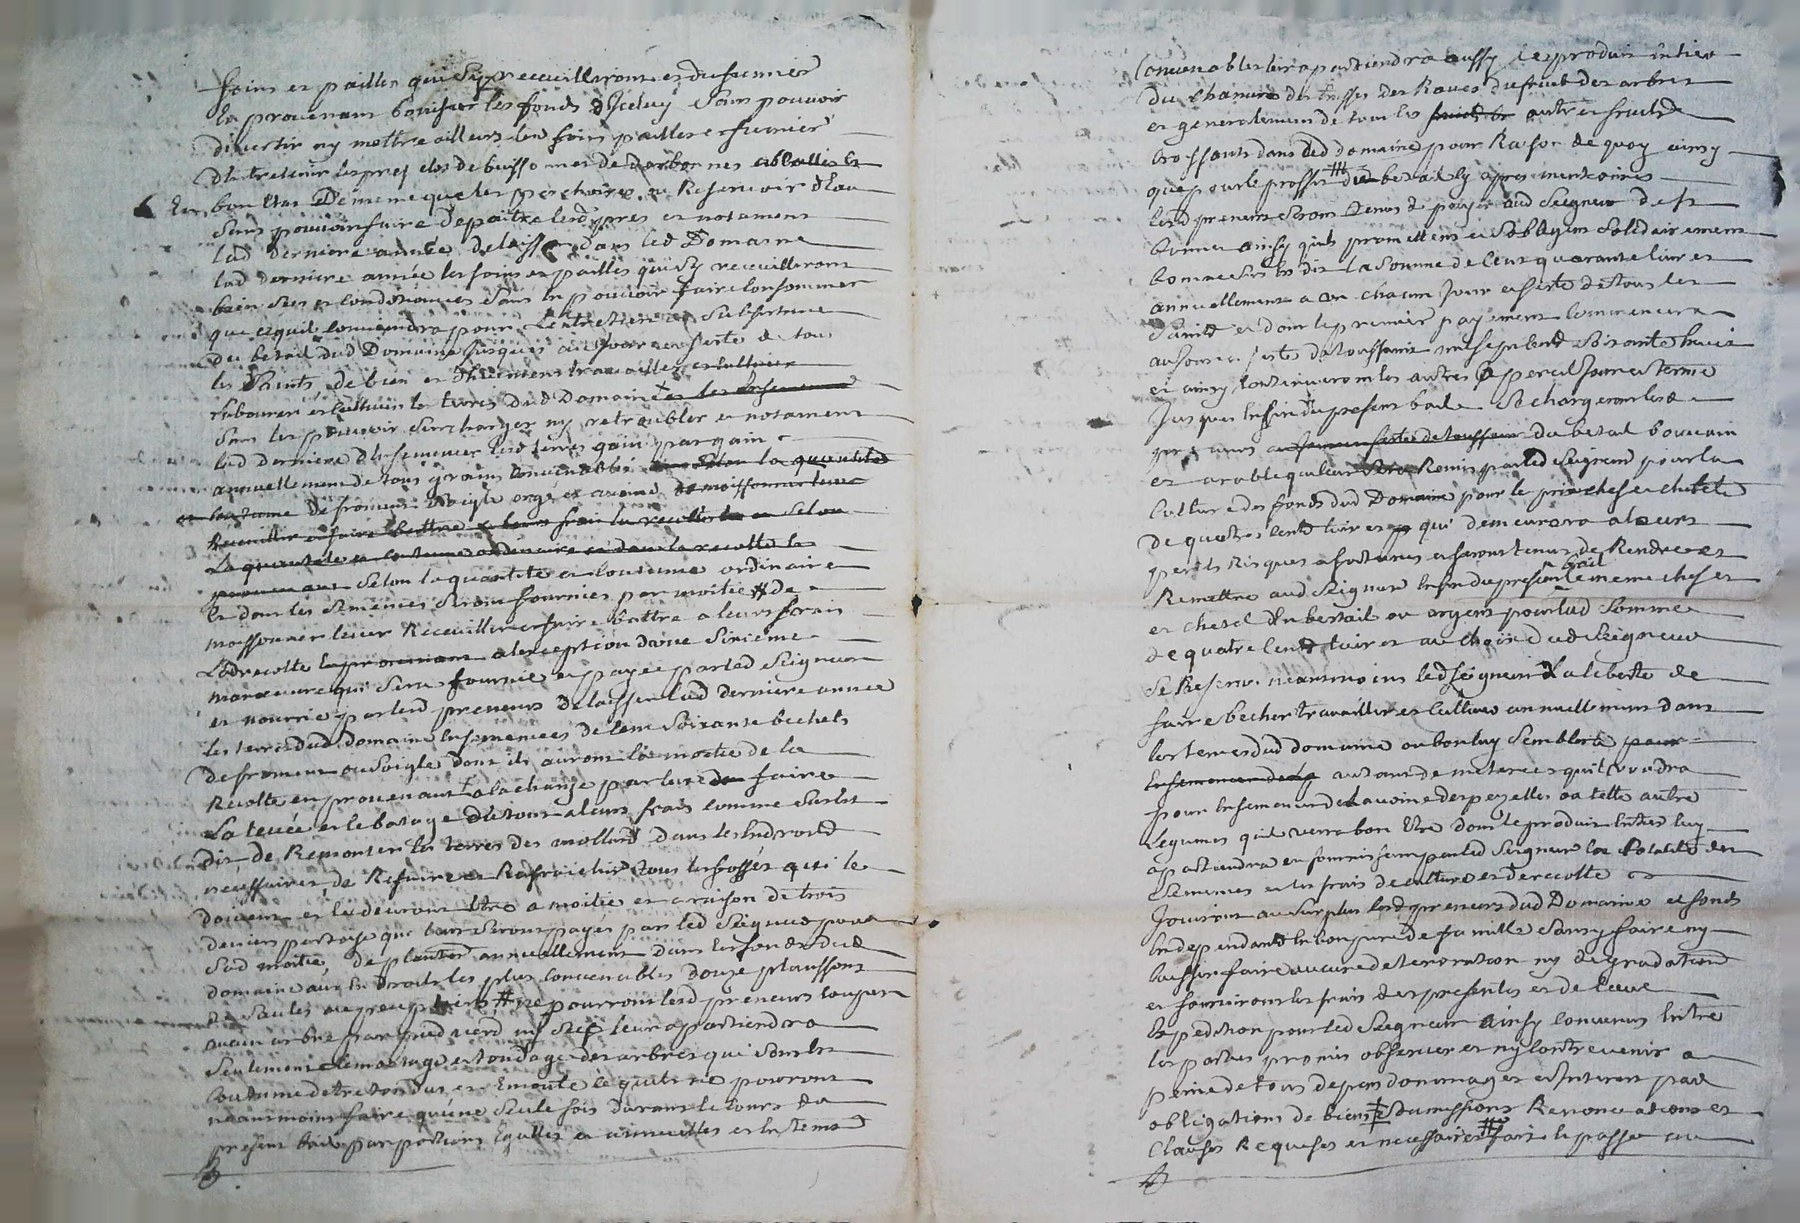 foins et pailles qui s'y recueilliront et du fumier
en provenant bonifier les fonds d'Iceluy sans pouvoir
divertir ny mettre ailleurs les foins pailles et fumier
d'entretenir les prez clos de buissonnes de
en bon etat De meme que les peschoires ou Reservoir d'Eau
sans pouvoir faire depaitre lesd prés et notament
lad derniere année de laisser dans led Domaine
lad derniere année les foins et pailles qui s'y receuilleront
bien secs et conditionnees sans en pouvoir faire Consommer
que ce quil conviendra pour L'entretien et subsistance
du betail dud Domaine jusques au jour et feste de tou
les saints, de bien et duement travailler et cultiver
Labourer et cultiver les terres dud Domaine et les Ensemencer
sans les pouvoir surcharger ny retroubler et notament
lad derniere d'Ensemencer lesd terres gain par gain
annuellement de tous grains convenables selon la quantité
et coutume de froment soeigle orge et avoine de moissonner lever
Receuillir et faire battre a leurs frais la recolte selon
La quantité et coutume ordinaire et dans la recolte
selon la quantité et coutume ordinaire
Et dont les semences seront fournies par moitié # de
moissonner lever Receuillir et faire battre a leurs frais
Lad recolte en provenant a l'exception d'une sixieme
manoeuvre qui sera fournie et payée par led Seigneur
et nourrie par lesd preneurs de laisser lad derniere année
les terres dud domaine ensemencées de cent soixante bechets
de froment ou soigle dont ils auront la moitié de la
Recolte en provenant a la charge par eux de faire
La levée et le batage du tout a leurs frais comme sus est
dit de Remonter les terres des mollard dans les Endroits
necessaires de Refaire et Rafraichir tous les fossés qui le
doivent et le devront etre a moitié et a raison de trois
deniers par toise que leur seront payés par led Seigneur pour
sad moitié, de planter annuellement dans les fonds dud
domaine aux Endroits les plus convenables douze plansons
de saules ou peupliers # ne pourront lesd preneurs couper
aucun arbre par pied verd ny sec leur appartiendra
seulement l'emontage et tondage des arbres qui sont en
Coutume d'etre tondus et Emonté ce qu'ils ne pourront
neantmoins faire qu'une seule fois durant le cours du
present bail par portions Egalles et annuelles et En tems
Convenables leur apartiendra aussy le produit entier
du chanvre des tresses des Raves du fruit des arbres
et generalement de tous les fruits et autres fruits
Croissants dans led domaine pour Raison de quoy ainsy
que pour le profit # du betail cy apres mentionné
lesd preneurs seront tenus de payer aud Seigneur de St
bonnet ainsy qu'ils promettent et s'obligent solidairement
comme sus est dit la somme de Cent quarante livres
annuellement a un chacun jour et feste de tous les
saints et dont le premier payement commencera
au jour et feste de toussaint mil sept cent soixante huit
et ainsy continueront les autres a pareil jour et terme
Jusques En fin du present bail se chargeront lesd
preneurs au jour et feste de toussaint du betail bouvain
et arable qui leur sera Remis par led Seigneur pour la
Culture des fonds dud Domaine pour le prix chef et chetel
de quatre cents livres qui demeurera a leurs
perils Risques et fortunes et seront tenus de Rendre et
Remettre aud Seigneur En fin du present bail le meme chef et
et chetel En bestail ou argent pour lad somme
de quatre cents livres au choix dud Seigneur
se Reserve neantmoins led Seigneur la liberté de
faire becher travailler et cultiver annuellement dans
les terres dud domaine ou bon luy semblera pour
Ensemencer autour de meterées quil voudra
pour Ensemencer d'avoine des pezettes ou telle autre
Legumes quil verra bon etre dont le produit Entier luy
apartiendra en fournissant par led Seigneur la totalité des
semences et les frais de culture et de recolte
Jouiront au surplus lesd preneurs dud Domaine et fonds
En dependants En bon pere de famille sans y faire ny
Laisser faire aucune deterioration ny degradation
et fourniront les frais des presentes et de l'une
Expedition pour led Seigneur ainsy convenu Entre
les parties promis observer et ny contrevenir a
peine de tous depens dommages et interets par
obligations de biens soumissions Renonciations et
Clauses Requises et necessaires # fait et passé au